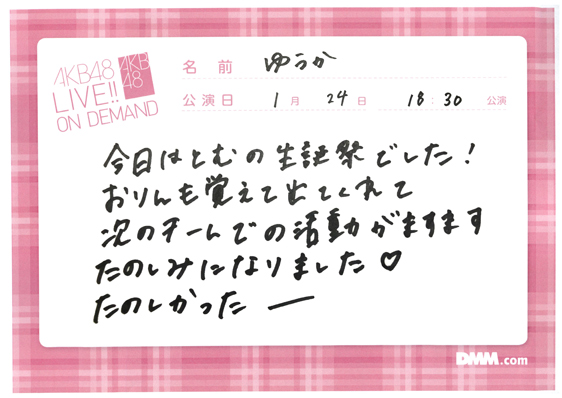 AKB48
LIVE!!
ON DEMAND
AKB
48
名前 ゆうか
公演日 1月 24日 18:30 公演
今日はとむの生誕祭でした!
おりんも覚えて出てくれて
次のチームでの活動がますます
たのしみになりました♡
たのしかったー
DMM.com